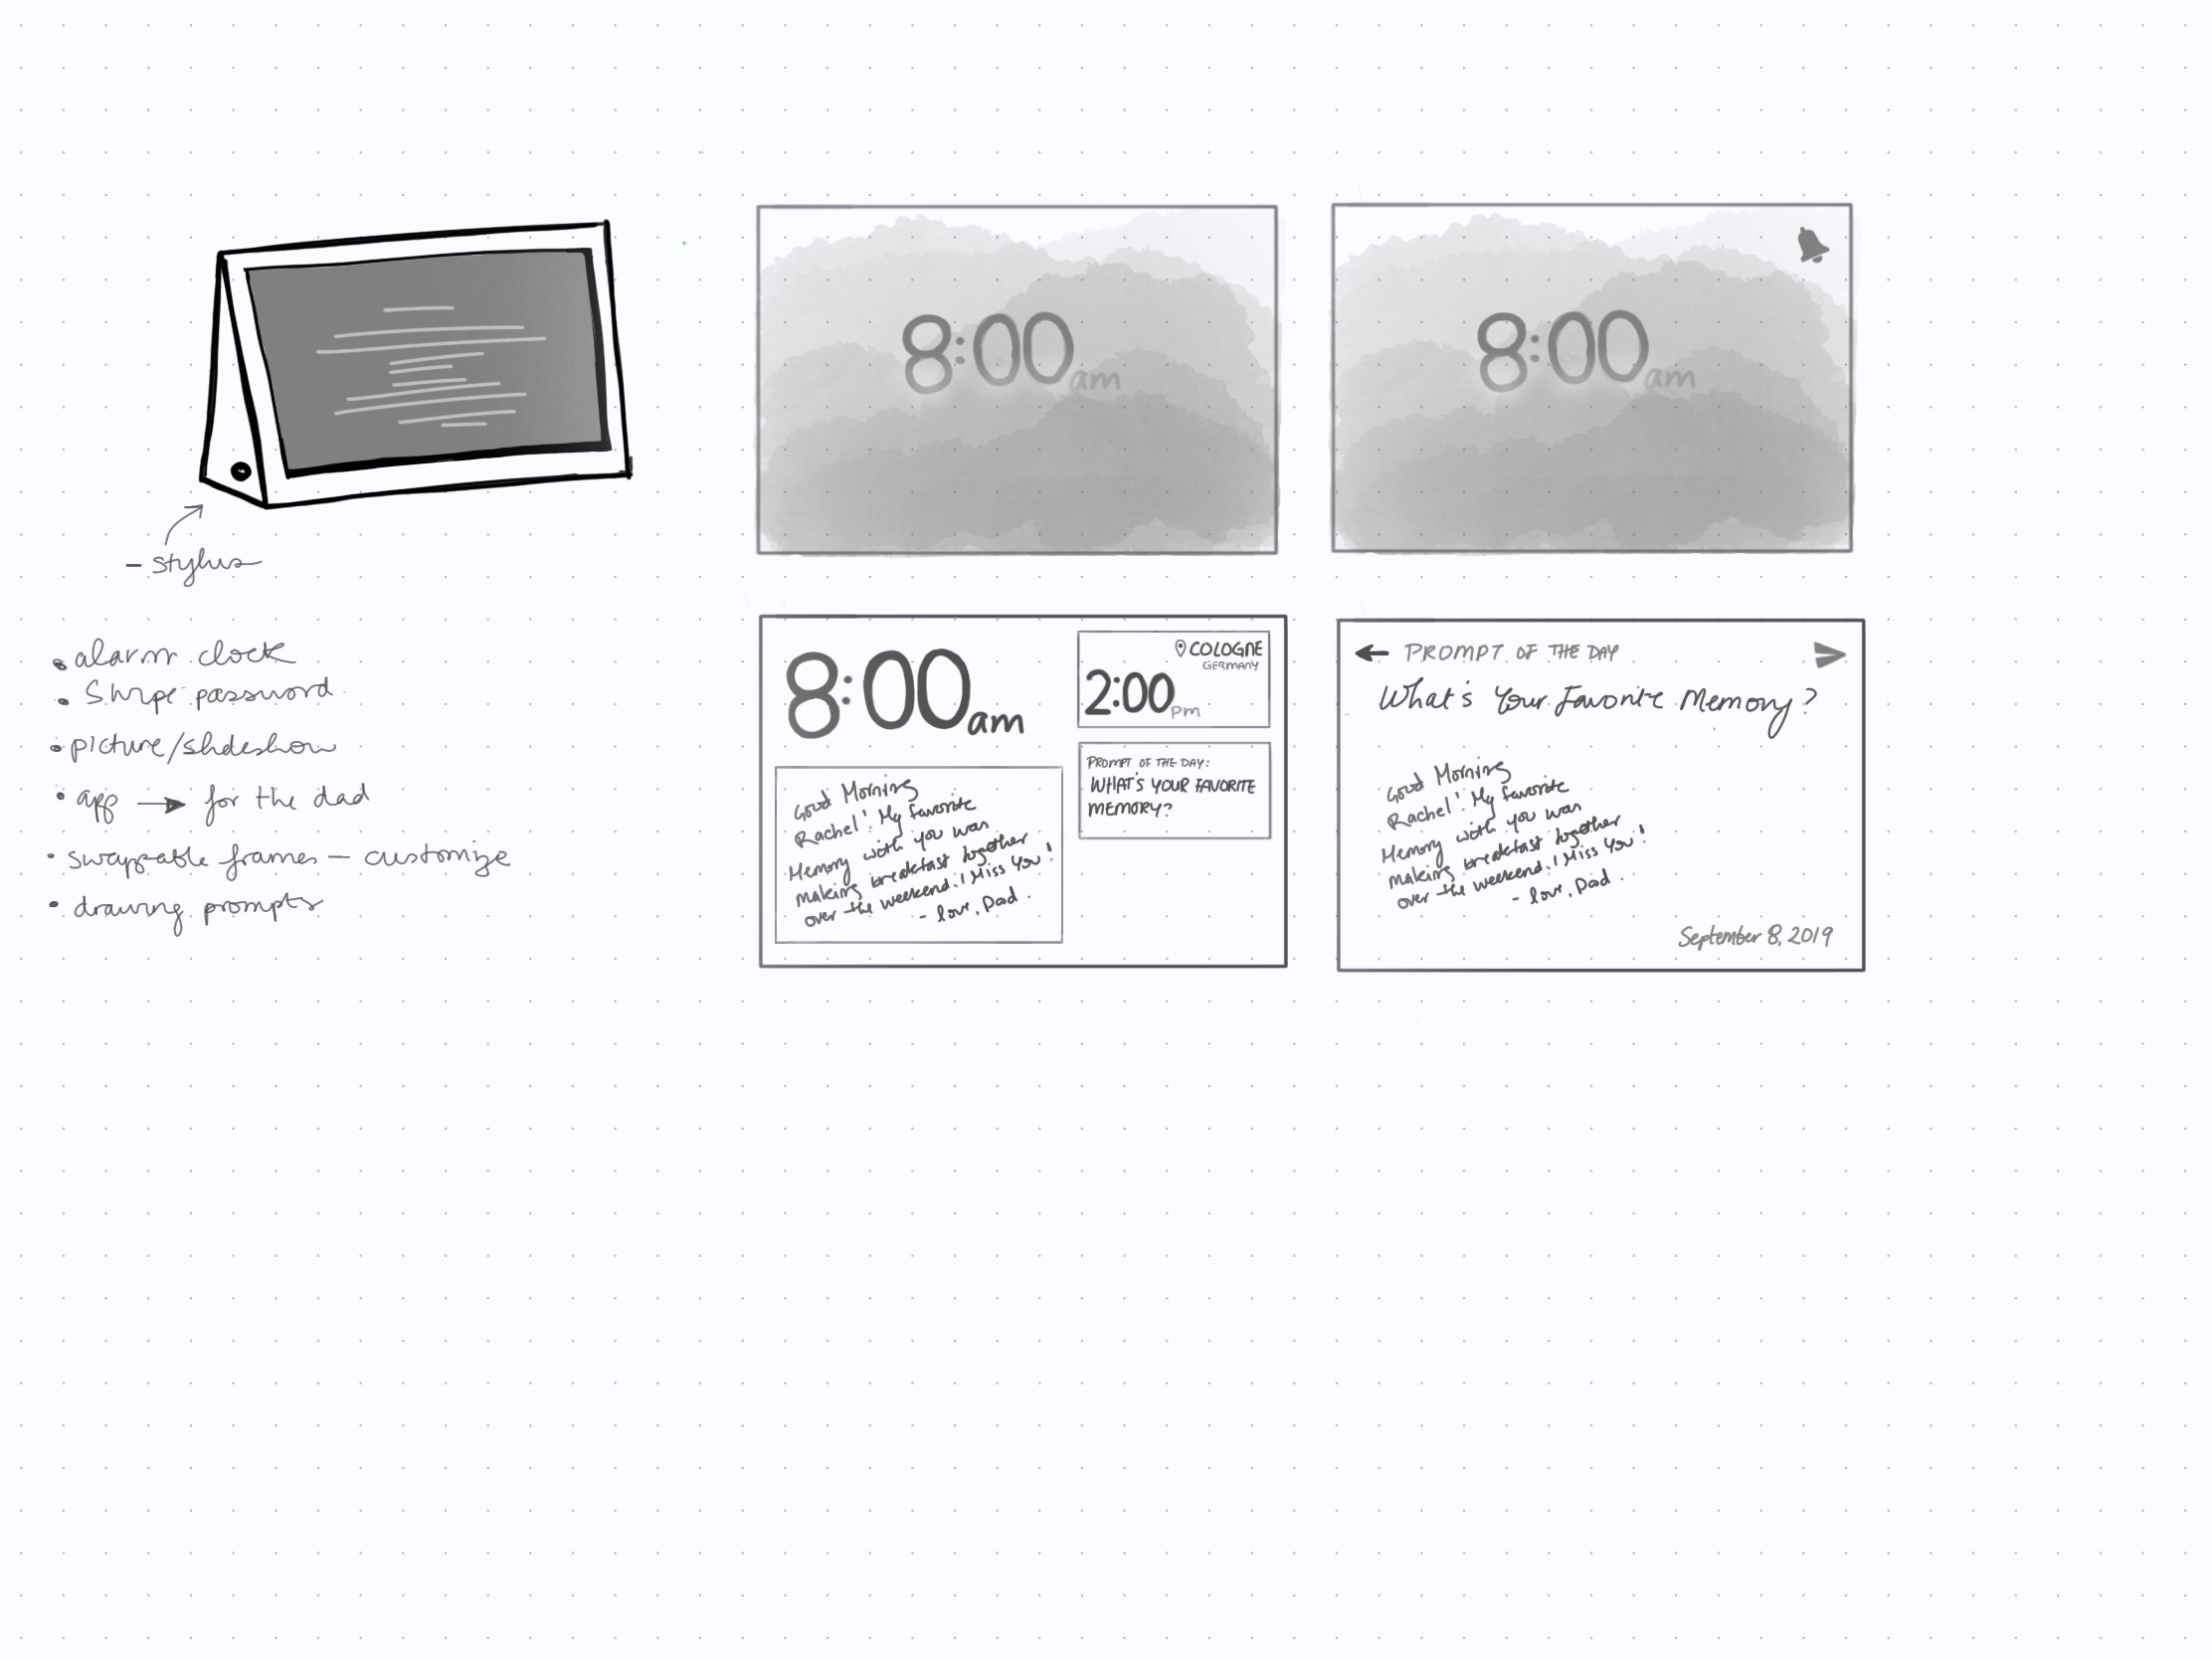 - stylus
• alarm clock
• Swipe password
• picture/slideshow
• app → for the dad
• swappable frames - customize
• drawing prompts
8:00 am
8:00 am
8:00 am
COLOGNE
GERMANY
2:00 pm
PROMPT OF THE DAY:
WHAT'S YOUR FAVORITE
MEMORY?
Good Morning
Rachel! My favorite
Memory with you was
making breakfast together
over the weekend. I Miss You!
- love, Dad.
← PROMPT OF THE DAY
What's Your Favorite Memory?
Good Morning
Rachel! My favorite
Memory with you was
making breakfast together
over the weekend. I Miss You!
- love, Dad.
September 8, 2019